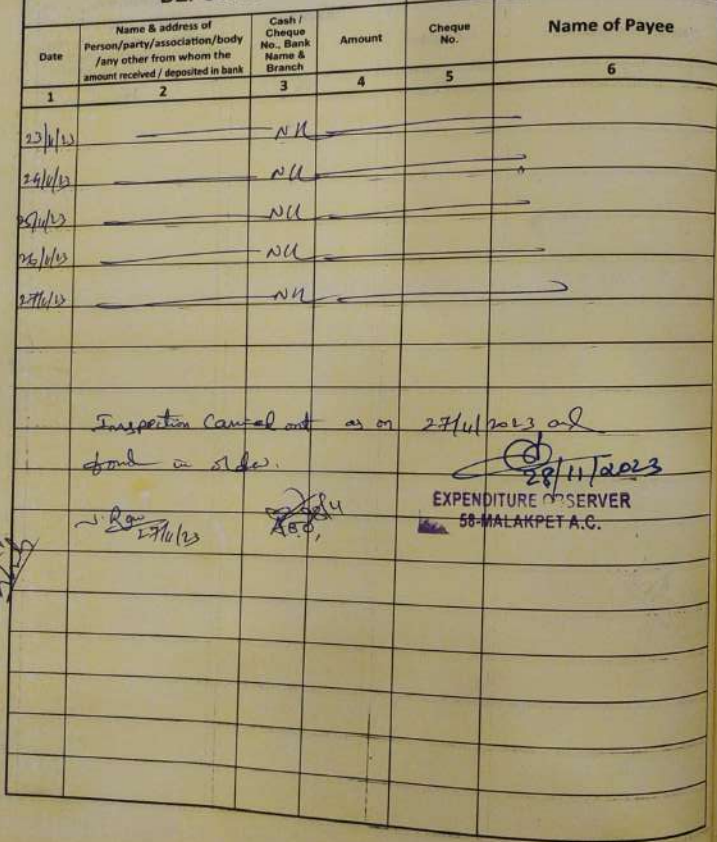 Date
Name & address of
Person/party/association/body
/any other from whom the
amount received / deposited in bank
Cash /
Cheque
No., Bank
Name &
Branch
Amount
Cheque
No.
Name of Payee
1 2 3 4 5 6
23/11/23 Nil
24/11/23 Nil
25/11/23 Nil
26/11/23 Nil
27/11/23 Nil
Inspection Carried out as on 27/11/2023 and
found in order.
28/11/2023
EXPENDITURE OBSERVER
58-MALAKPET A.C.
27/11/23